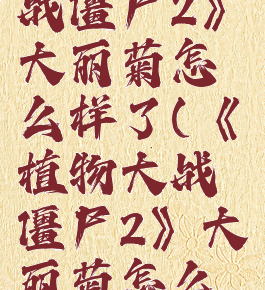 战僵尸2》
大丽菊怎
么样了(《
植物大战
僵尸2》大
丽菊怎么